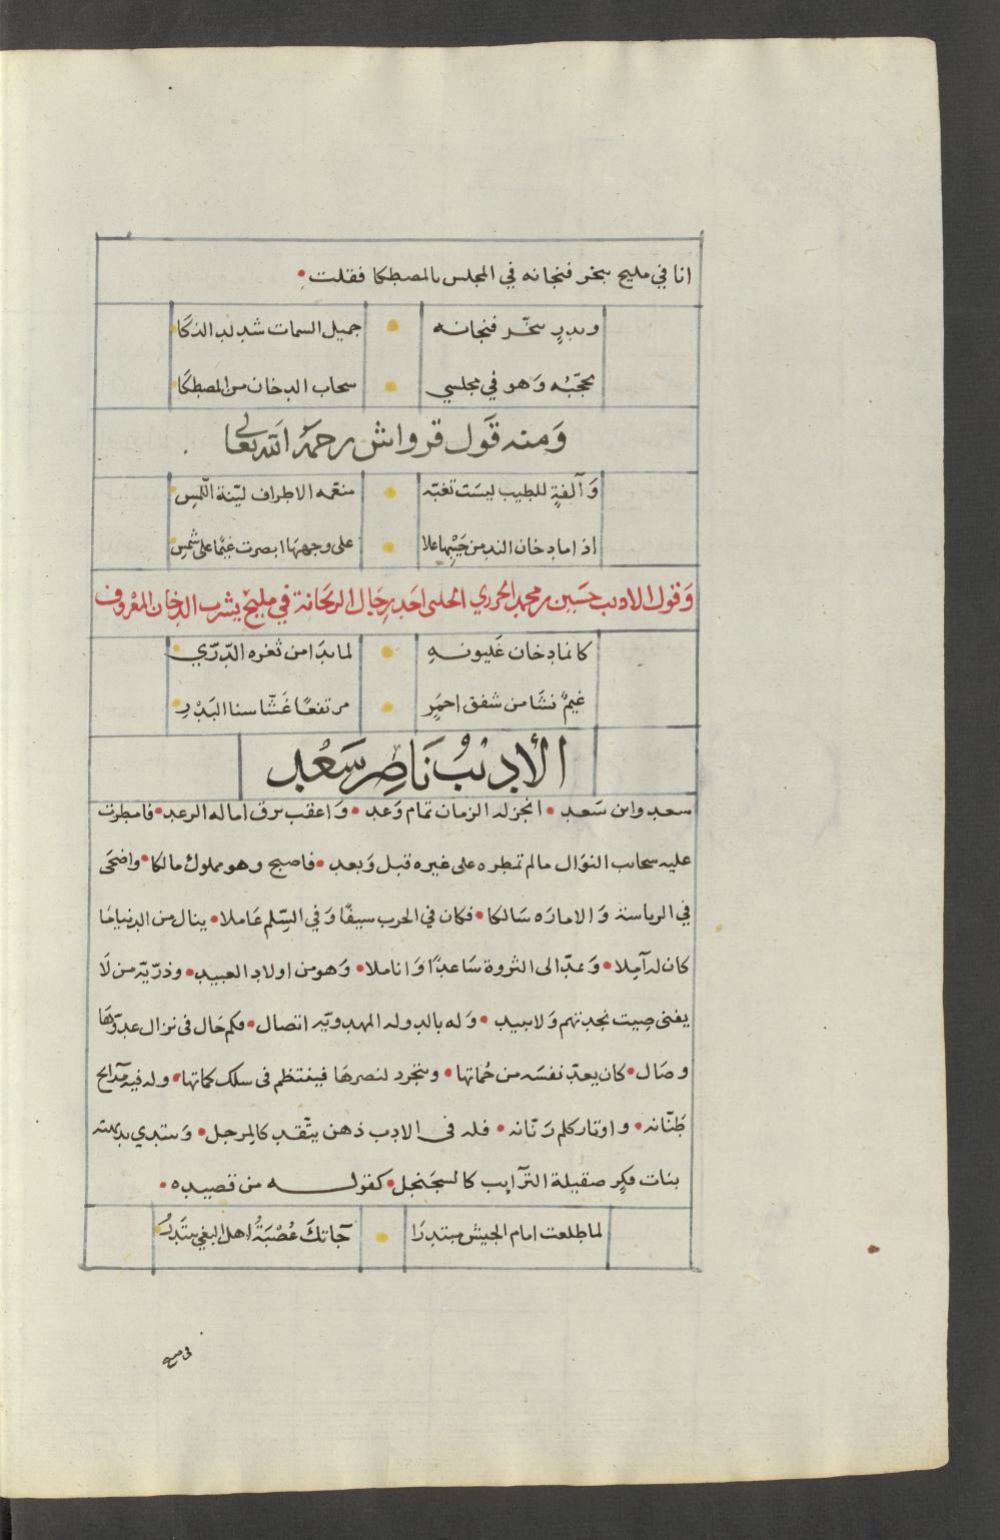 انا في مليح يبخر فنجانه في المجلس بالمصطكا فقلت
وبدرٍ يبخّر فنجانه جميل السمات شديد الذكَا
يحجّبُه وَهو في مجلسي سحاب الدخان من المصطكَا
وَمنه قَول قرواش رحمهُ اللَه تعالى
وَآلفةٍ للطيب ليسَت تغبّه منعّمه الاطراف ليّنة اللّمسِ
اذا ما دخان الند من جَيْبِها علا على وجهها ابصرت غيمًا على شمسِ
وَقول الاديب حسَين بن محمد الجزري الحلبى احَد رجَال الريحَانة في مليحٍ يشرب الدخان المعْروف
كانما دخان غَليونهِ لما بدَا من ثغره الدّرّي
غيمٌ نشَا من شفق احمَرٍ مرتفعًا غَشّا سنا البَدْرِ
الأديبُ نَاصِر سَعْد
سعد وابن سَعد انجز له الزمان تمام وَعد وَاعقب برق اماله الرعد فامطرت
عليه سحائب النوَال مالم تمطره على غيره قبل وَبعد فاصبح وهو مملوك مالكا واضحَى
في الرياسة وَالامارَه سَالكا فكان في الحرب سيفًا وَفي السِّلم عَاملا ينال من الدنيا مَا
كان له آمِلا وَيمدّ الى الثروة سَاعدًا وَاناملا وَهو من اولاد العبيد وذرّيّة من لَا
يفنى صِيت نجدتهم وَلا يبيد وَله بالدوله المهدويّه اتصال فكم جَال فى نزال عدوّهَا
وصَال كان يعدّ نفسَه من حُماتها ويتجرد لنصرهَا فينتظم فى سلك كماتها وله فيه مَدَائح
طَنّانه واوتار كلم رَنّانه فله فى الادب ذهن يتّقد كالمِرجل وَيبتدي بديهته
بنات فِكرٍ صقيلة الترَآيب كالسجَنجل كقوله من قصيده
لما طلعت امام الجيش مبتدرَا جَآتكَ عُصْبَةُ اهل البغي تبتَدِرُ